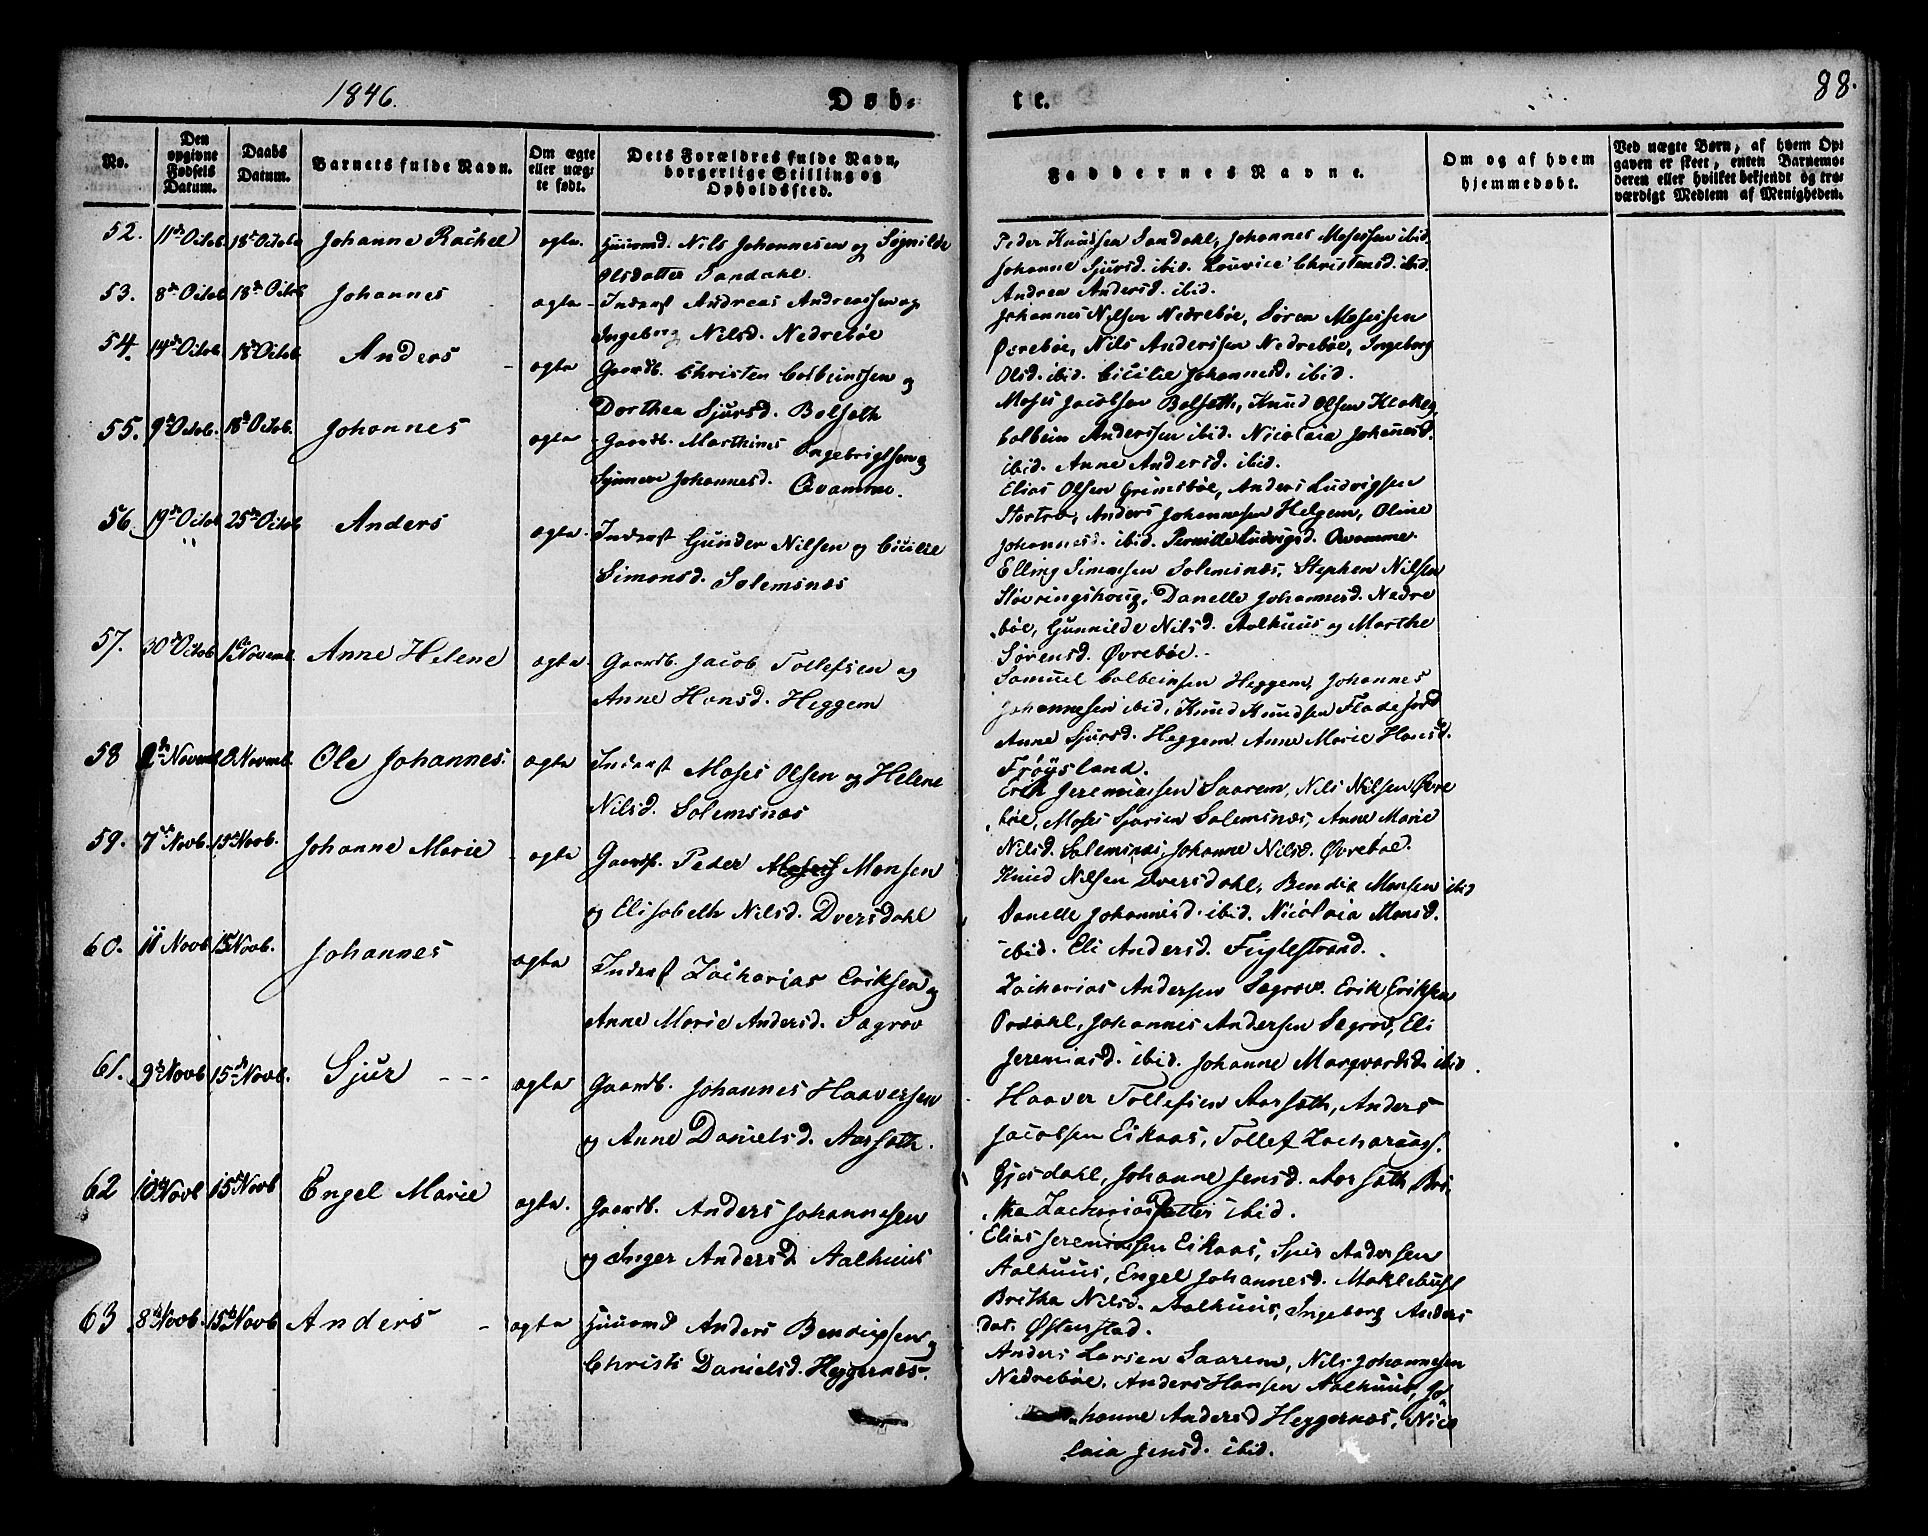 1846.
Døb-
te.
88.
No.
Den opgivne Fødsels Datum.
Daabs Datum.
Barnets fulde Navn.
Om ægte eller uægte født.
Dets Forældres fulde Navn, borgerlige Stilling og Opholdssted.
Faddernes Navne.
Om og af hvem hjemmedøbt.
Ved uægte Børn, af hvem Opgaven er skeet, enten Barnemoderen eller hvilket bekjendt og troværdigt Medlem af Menigheden.
52. 11te Octob 18de Octob Johanne Rachel ægte. Huusmd. Nils Johannesen og Søgnilde
Olsdatter Sandahl.
53. 8de Octob 18de Octob Johannes ægte Inderst Andreas Andreassen og
Ingeborg Nilsd. Nedrebøe
54. 14de Octob 18de Octob Anders ægte Gaardb. Christen Colbeinssen og
Dorthea Sjursd. Bolsæth
55. 9de Octob. 18de Octob. Johannes ægte Gaardb. Marthines Ingebrigtsen og
Synneve Johannesd. Qvamme.
56 19de Octob 25de Octob Anders ægte Inderst Gunder Nilsen og Cicilie
Simonsd. Solemsnæs
57. 30de Octob 1ste Novemb Anne Helene ægte Gaardb. Jacob Tollefsen og
Anne Hansd. Heggem
58 2de Novemb 8 Novemb. Ole Johannes. ægte Inderst Moses Olsen og Helene
Nilsd. Solemsnæs
59. 7de Novb. 15de Novb. Johanne Marie ægte Gaardb. Peder Monsen
og Elisabeth Nilsd. Dversdahl
60. 11 Novb 15de Novb. Johannes ægte Inderst Zacharias Eriksen og
Anne Marie Andersd. Sægrov
61. 9de Novb 15de Novb. Sjur ægte Gaardb. Johannes Haaversen
og Anne Danielsd. Aarsæth.
62 10de Novb 15de Novb Engel Marie ægte. Gaardb. Anders Johannesen
og Inger Andersd Aalhuus
63 8de Novb. 15de Novb Anders ægte Huusmd Anders Bendixsen og
Christi Danielsd. Heggernæs.
Peder Knudsen Sandahl, Johannes Mosessen ibid.
Johanne Sjursd. ibid. Lovvice Christensd. ibid.
Andrea Andersd. ibid.
Johannes Nilsen Nedrebøe, Søren Mosessen
Øvrebøe, Nils Anderssen Nedrebøe, Ingeborg
Olsd. ibid. Cicilie Johannesd. ibid.
Moses Jacobsen Bolsæth, Knud Olsen Klakeg,
Colbein Anderssen ibid. Nicolaia Johannesd.
ibid. Anne Andersd. ibid.
Elias Olsen Grimsbøe, Anders Ludvigsen
Stortræ, Anders Johannesen Helgem, Oline
Johannesd. ibid. Pernille Ludvigsd. Qvamme.
Elling Simonsen Solemsnæs, Stephen Nilsen
Støvringshoug, Danelle Johannesd. Nedre
bøe, Gunnilde Nilsd. Aalhuus og Marthe
Sørensd. Øvrebøe.
Samuel Colbeinsen Heggem, Johannes
Johannesen ibid. Knud Knudsen Fladefjord
Anne Sjursd. Heggem Anne Marie Hansd.
Frøysland.
Erik Jeremiassen Saarem, Nils Nilsen Øvre
bøe, Moses Sjursen Solemsnæs, Anne Marie
Nilsd. Solemsnæs, Johanne Nilsd. Øvrebøe.
Knud Nilsen Dversdahl, Bendix Monsen ibid
Danelle Johannesd. ibid. Nicolaia Monsd.
ibid. Eli Andersd. Fuglestrand.
Zacharias Andersen Sægrov. Erik Eriksen
Ordahl, Johannes Andersen Sægrov, Eli
Jeremiasd. ibid. Johanne Margvardsd. ibid.
Haaver Tollefsen Aarsæth, Anders
Jacobsen Eikaas, Tollef Zachariass.
Gjesdahl, Johanne Jensd. Aarsæth, Bri-
tha Zachariasdatter ibid.
Elias Jeremiassen Eikaas, Sjur Andersen
Aalhuus, Engel Johannesd. Maklebust
Britha Nilsd. Aalhuus, Ingeborg Anders
dat. Østenstad.
Anders Larsen Saarem, Nils Johannesen
Nedrebøe. Anders Hansen Aalhuus, Jo
hanne Andersd Heggernæs, Nico
laia Jensd. ibid.